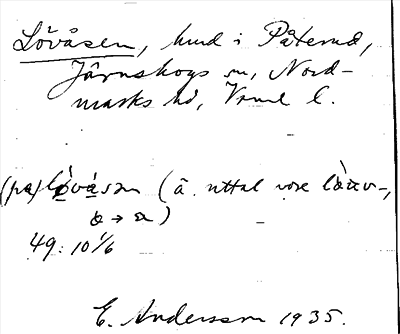 Lövåsen, hmd i Påterud,
Järnskogs sn, Nord-
marks hd, Vrml l.
(på) lövåsən (ä. uttal vore
49:10⅙
E. Andersson 1935.